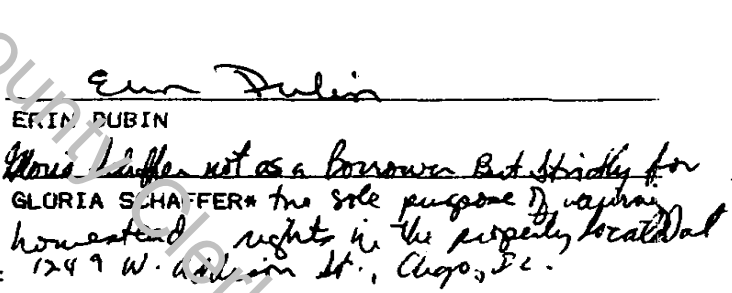 Erin Dubin
ERIN DUBIN
Gloria Schaffer not as a Borrower But Strictly for
GLORIA SCHAFFER* the sole purpose of waiving
homestead rights in the property located at
1249 W. St., Chgo, IL.
ounty Cler